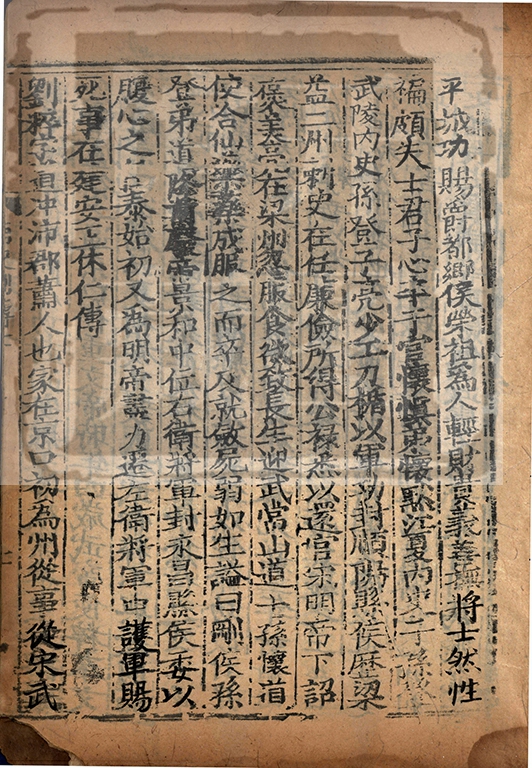 平城功賜爵都鄉侯榮祖為人輕財貴義善撫將士然性
褊頗失士君子心卒于官懷慎弟懷默江夏內史子孫登
武陵內史孫登子亮少工刀楯以軍功封順陽縣侯歷梁
益二州刺史在任廉儉所得公祿悉以還官宋明帝下詔
褒美亮在梁州忽服食欲致長生迎武當山道士孫懷道
使合仙藥藥成服之而卒及就斂屍弱如生謚曰剛侯孫
登弟道隆前廢帝景和中位右衛將軍封永昌縣侯委以
腹心之任泰始初又為明帝盡力遷左衛將軍中護軍賜
死事在建安王休仁傳
劉粹字道沖沛郡蕭人也家在京口初為州從事從宋武